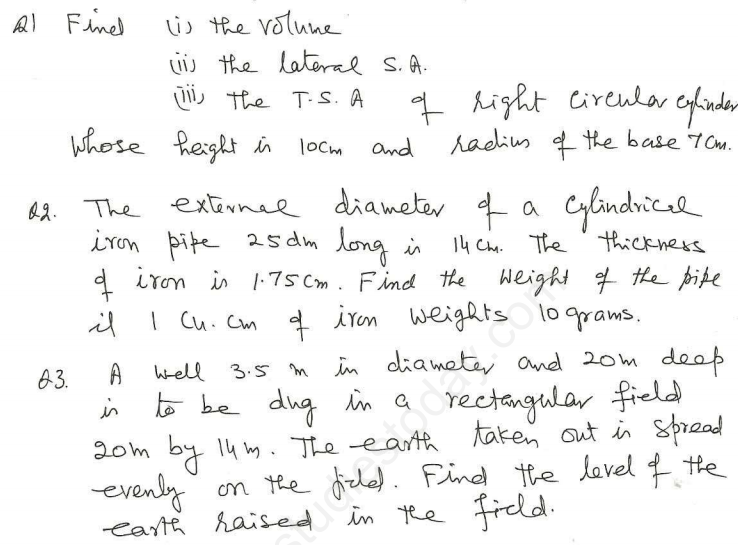 Q1 Find (i) the volume
(ii) the lateral S.A.
(iii) the T.S.A of right circular cylinder
whose height is 10cm and radius of the base 7cm.
Q2. The external diameter of a cylindrical
iron pipe 25dm long is 14cm. The thickness
of iron is 1.75cm. Find the weight of the pipe
if 1 cu.cm of iron weights 10grams.
Q3. A well 3.5 m in diameter and 20m deep
is to be dug in a rectangular field
20m by 14m. The earth taken out is spread
evenly on the field. Find the level of the
earth raised in the field.
studiestoday.com